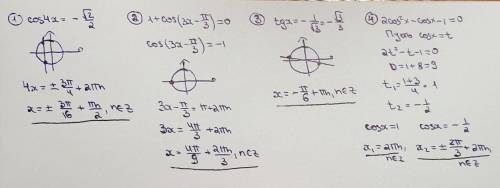 ① cos4x = -√2/2
4x = ± 3π/4 + 2πn
x = ± 3π/16 + πn/2, n∈Z
② 1+cos(3x-π/3)=0
cos(3x-π/3)=-1
3x-π/3=π+2πn
3x=4π/3+2πn
x=4π/9+2πn/3, n∈Z
③ tgx=-1/√3=-√3/3
x=-π/6+πn, n∈Z
④ 2cos²x-cosx-1=0
Пусть cosx=t
2t²-t-1=0
D=1+8=9
t₁=1+3/4=1
t₂=-1/2
cosx=1 cosx=-1/2
x₁=2πn, n∈Z x₂=±2π/3+2πn, n∈Z